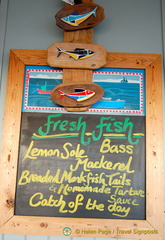 Fresh Fish
Lemon Sole Bass
Mackerel
Breaded Monkfish Tails
& Homemade Tartare
Sauce
Catch of the day
© Helen Page / Travel Signposts